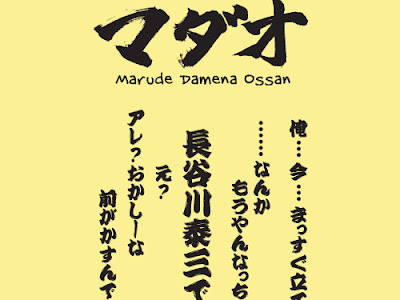 マダオ
Marude Damena Ossan
俺…今…まっすぐ立て
……なんか
もうやんなっち
長谷川泰三で
元?
アレ?おかしーな
前がかすんで